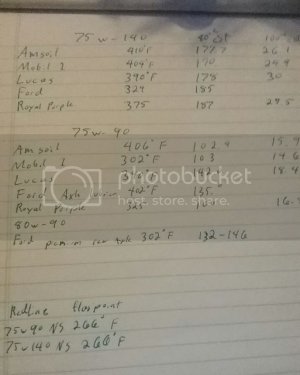 75w-140 40° St 100°
Amsoil 410°F 177.7 26.1
Mobil 1 404°F 170 24.9
Lucas 390°F 175 30
Ford 329 185
Royal Purple 375 187 29.5
75w-90
Amsoil 406°F 102.9 15.9
Mobil 1 302°F 103 14.6
18.4
Ford Axle 402°F 135
Royal Purple 325 16.
80w-90
Ford Axle 302°F 132-146
photobucket
host. store. share.
RedLine flaspoint
75w90 NS 266°F
75w140 NS 266°F